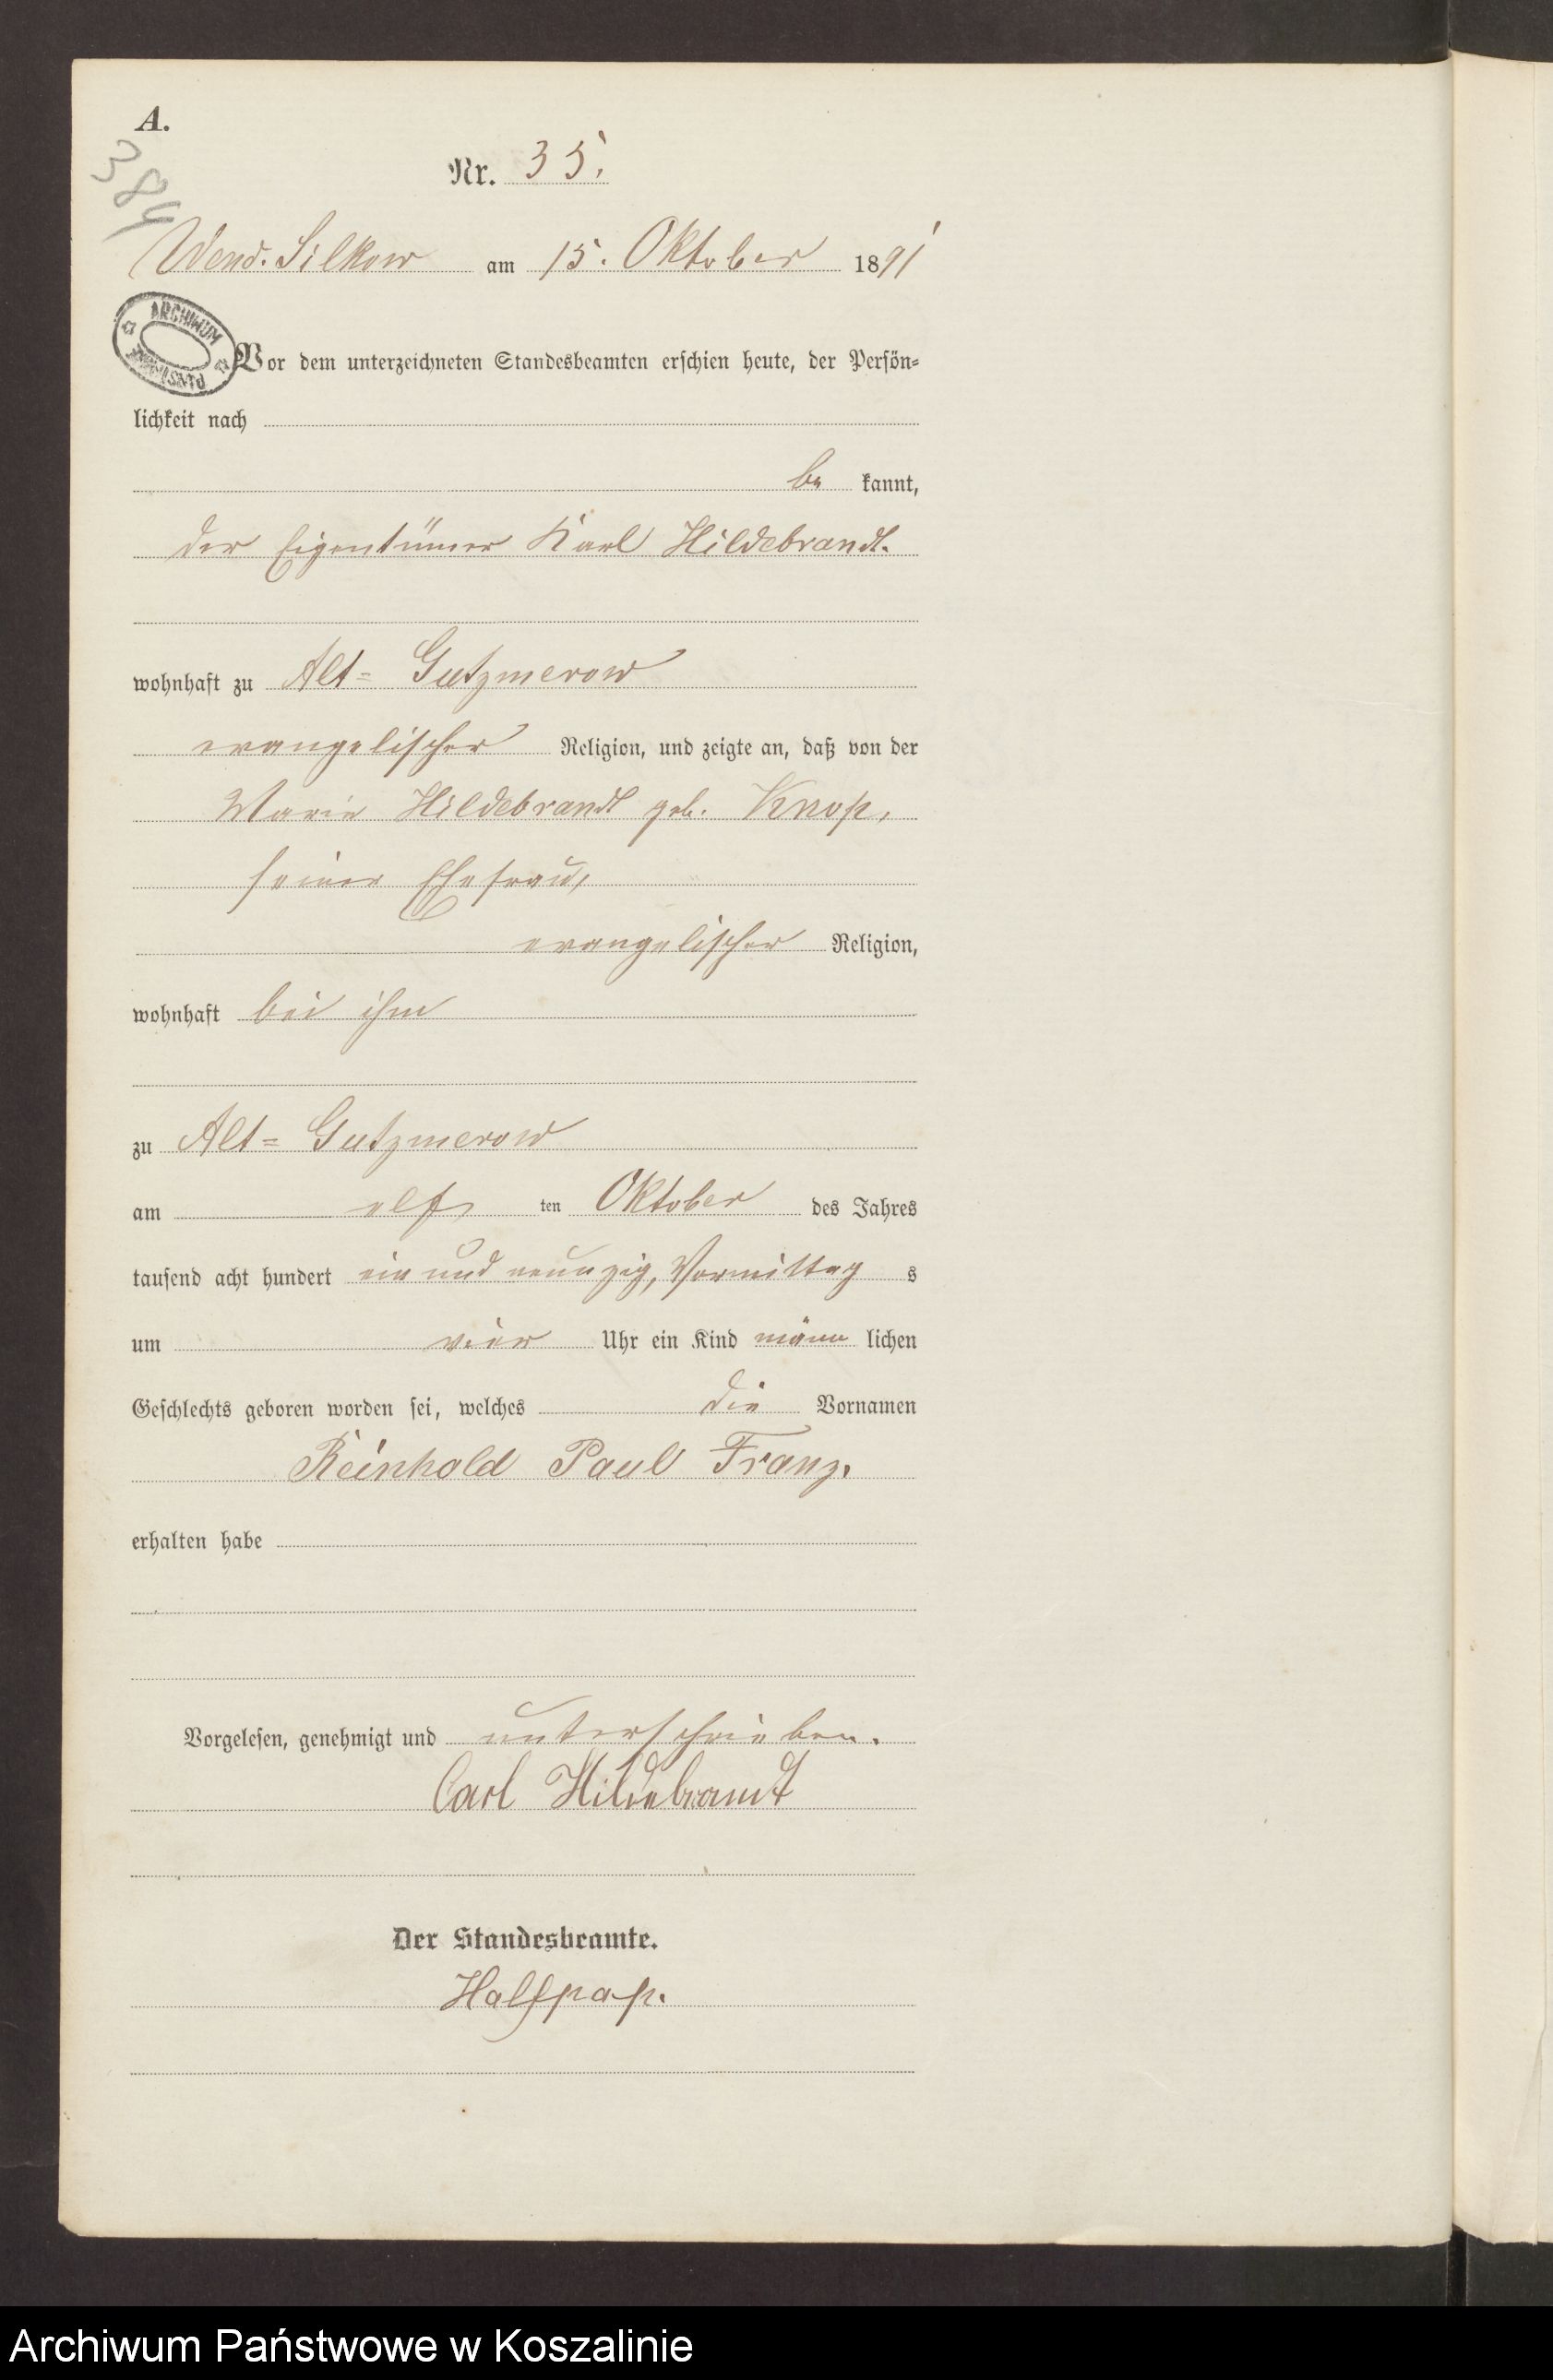 A.
384
Nr. 35.
Wend. Silkow am 15. Oktober 1891
ARCHIWUM
Vor dem unterzeichneten Standesbeamten erschien heute, der Persön=
lichkeit nach
be kannt,
der Eigentümer Karl Hildebrandt.
wohnhaft zu Alt= Gutzmerow
evangelischer Religion, und zeigte an, daß von der
Marie Hildebrandt geb. Knop,
seiner Ehefrau,
evangelischer Religion,
wohnhaft bei ihm
zu Alt= Gutzmerow
am elf ten Oktober des Jahres
tausend acht hundert ein und neunzig, Vormittag s
um vier Uhr ein Kind männ lichen
Geschlechts geboren worden sei, welches die Vornamen
Reinhold Paul Franz.
erhalten habe
Vorgelesen, genehmigt und unterschrieben.
Carl Hildebrandt
Der Standesbeamte.
Halfpap.
Archiwum Państwowe w Koszalinie